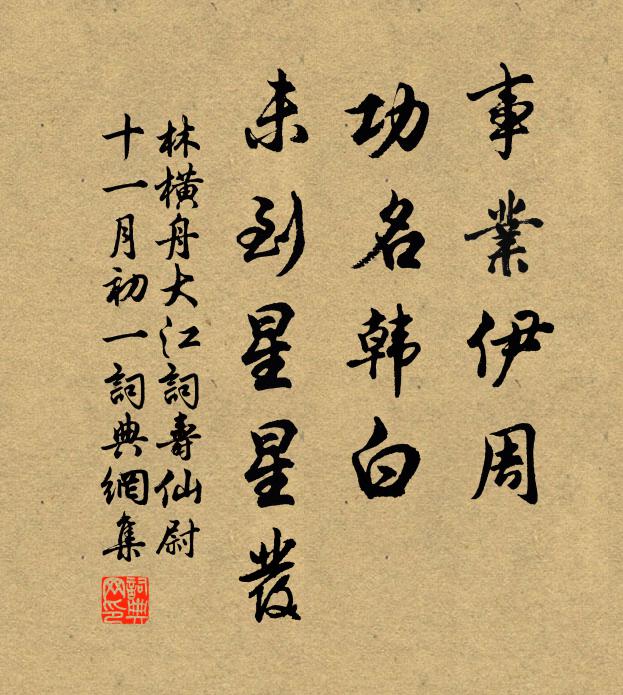 事業伊周
功名韩白
未到星星發
林橫舟大江詞壽仙尉
十一月初一詞典網集
詞典网印